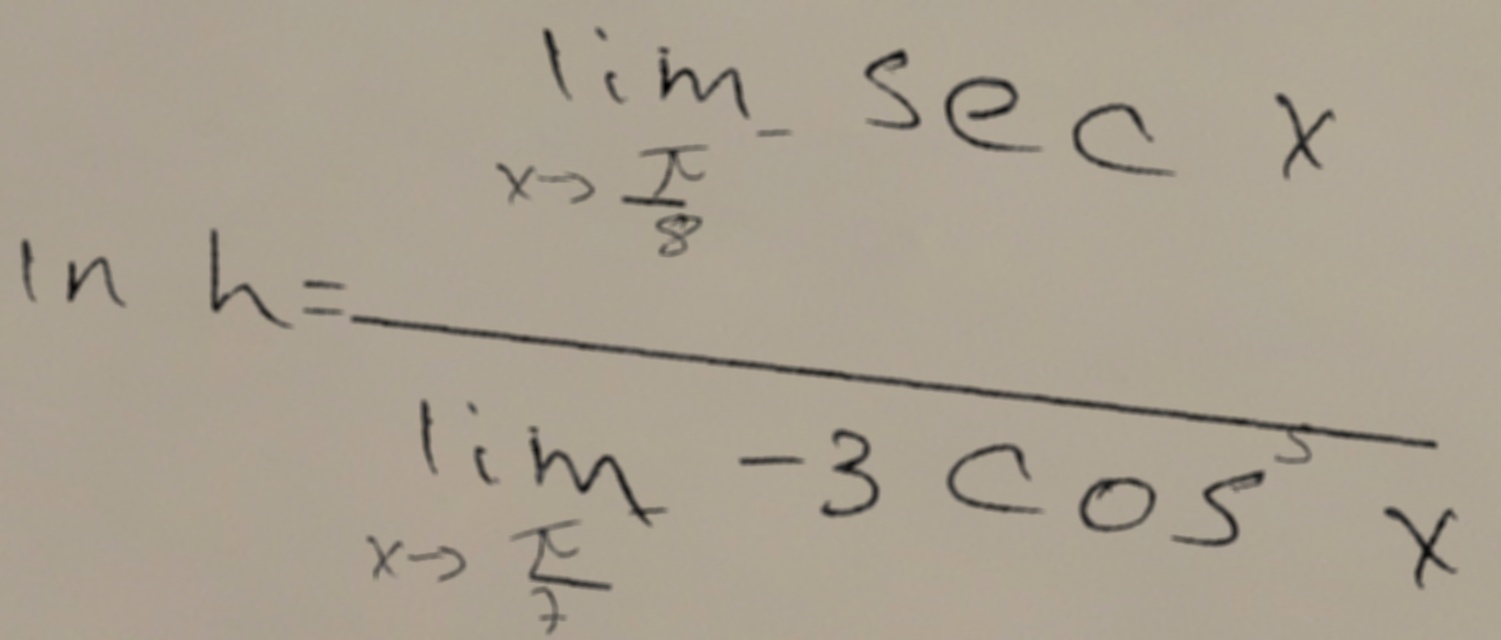 \ln h = \frac{\lim_{x \to \frac{\pi}{8}^-} \sec x}{\lim_{x \to \frac{\pi}{7}^+} -3 \cos^5 x}